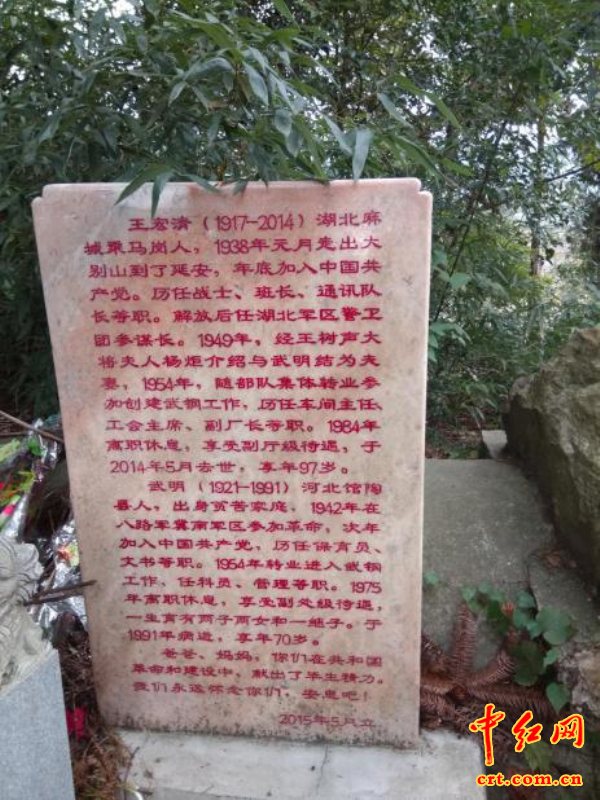 王宏清（1917—2014）湖北麻
城乘马岗人，1938年元月走出大
别山到了延安，年底加入中国共
产党。历任战士、班长、通讯队
长等职。解放后任湖北军区警卫
团参谋长。1949年，经王树声大
将夫人杨炬介绍与武明结为夫
妻，1954年，随部队集体转业参
加创建武钢工作，历任车间主任、
工会主席、副厂长等职。1984年
离职休息，享受副厅级待遇，于
2014年5月去世，享年97岁。
武明（1921-1991）河北馆陶
县人，出身贫苦家庭，1942年在
八路军冀南军区参加革命，次年
加入中国共产党，历任保育员、
文书等职。1954年转业进入武钢
工作、任科员、管理等职。1975
年离职休息，享受副处级待遇，
一生育有两子两女和一继子。于
1991年病逝，享年70岁。
爸爸、妈妈，你们在共和国
革命和建设中，献出了毕生精力。
我们永远怀念你们，安息吧！
2015年5月立
中红网
crt.com.cn